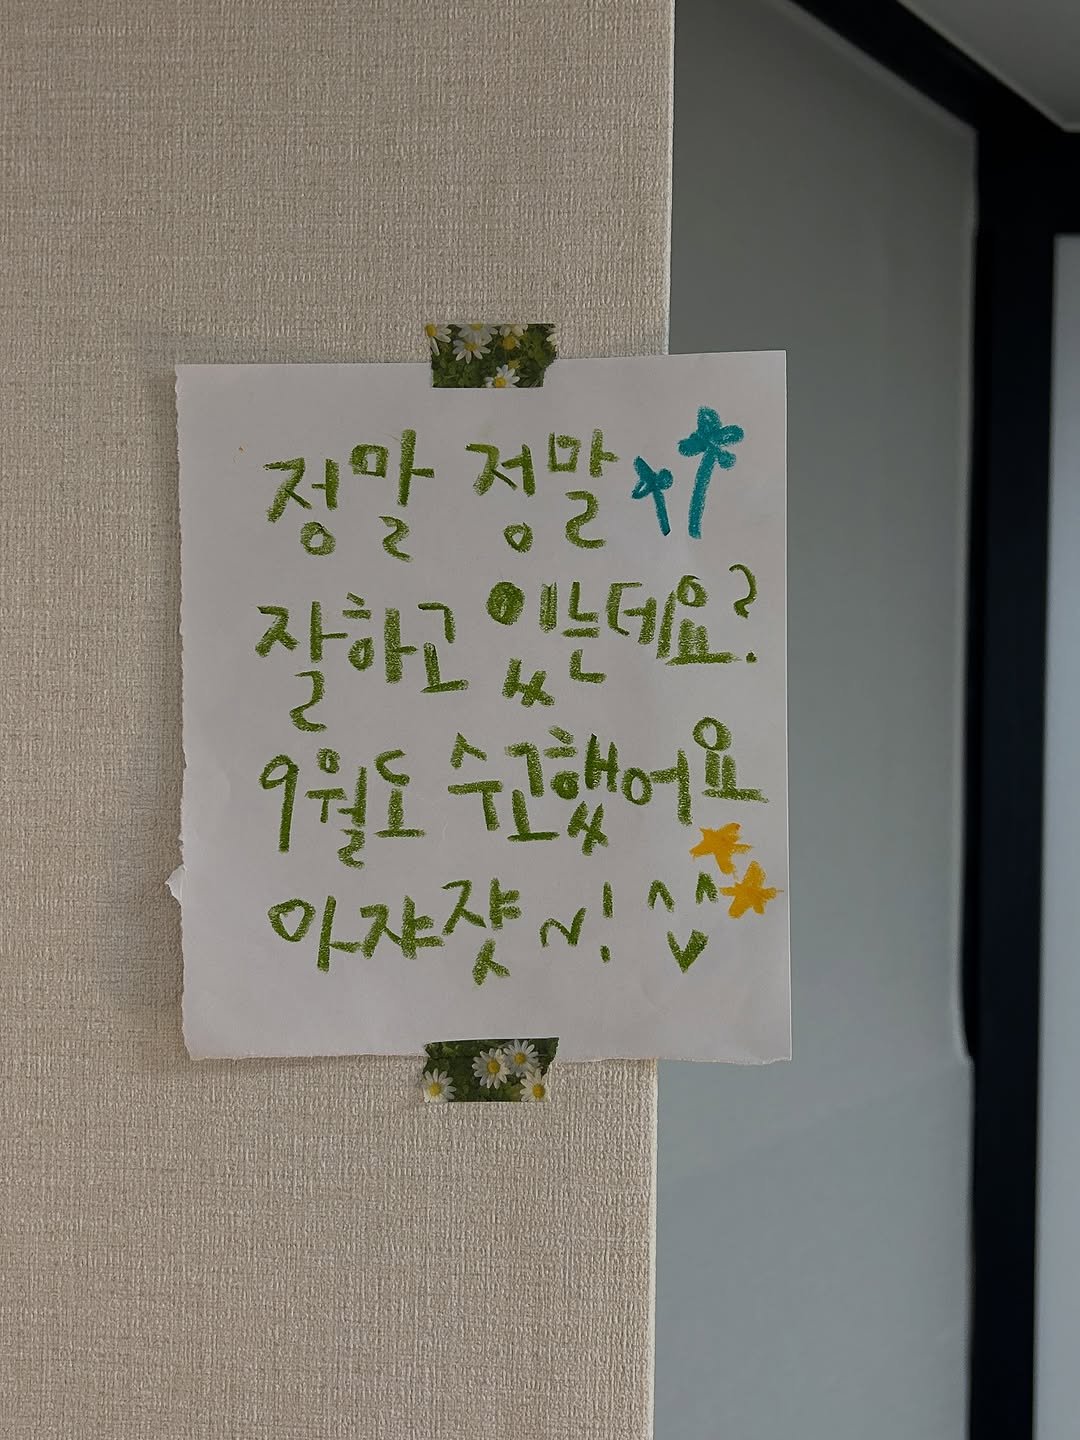 정말 정말
잘하고 있는데요?
9월도 수고했어요
아쟈쟛~! ^^